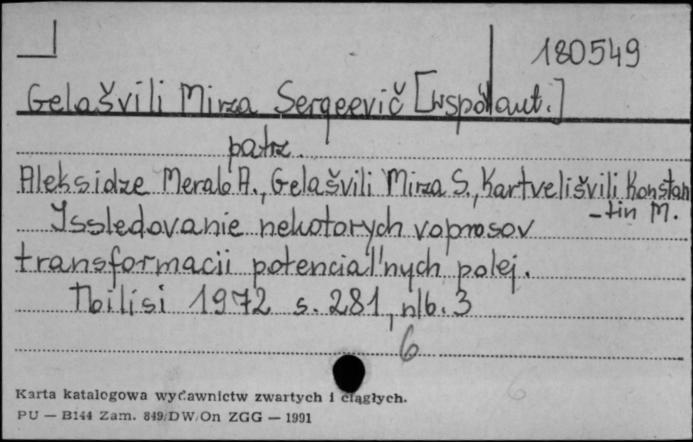 180549
Gelašvili Mirza Sergeevič [współaut.]
patrz.
Aleksidze Merab A., Gelašvili Mirza S., Kartvelišvili Konstan
-tin M.
Issledovanie nekotorych voprosov
transformacii potencial'nych polej.
Tbilisi 1972 s. 281, nlb. 3
6
Karta katalogowa wydawnictw zwartych i ciągłych.
PU — B144 Zam. 849/DW/On ZGG — 1991